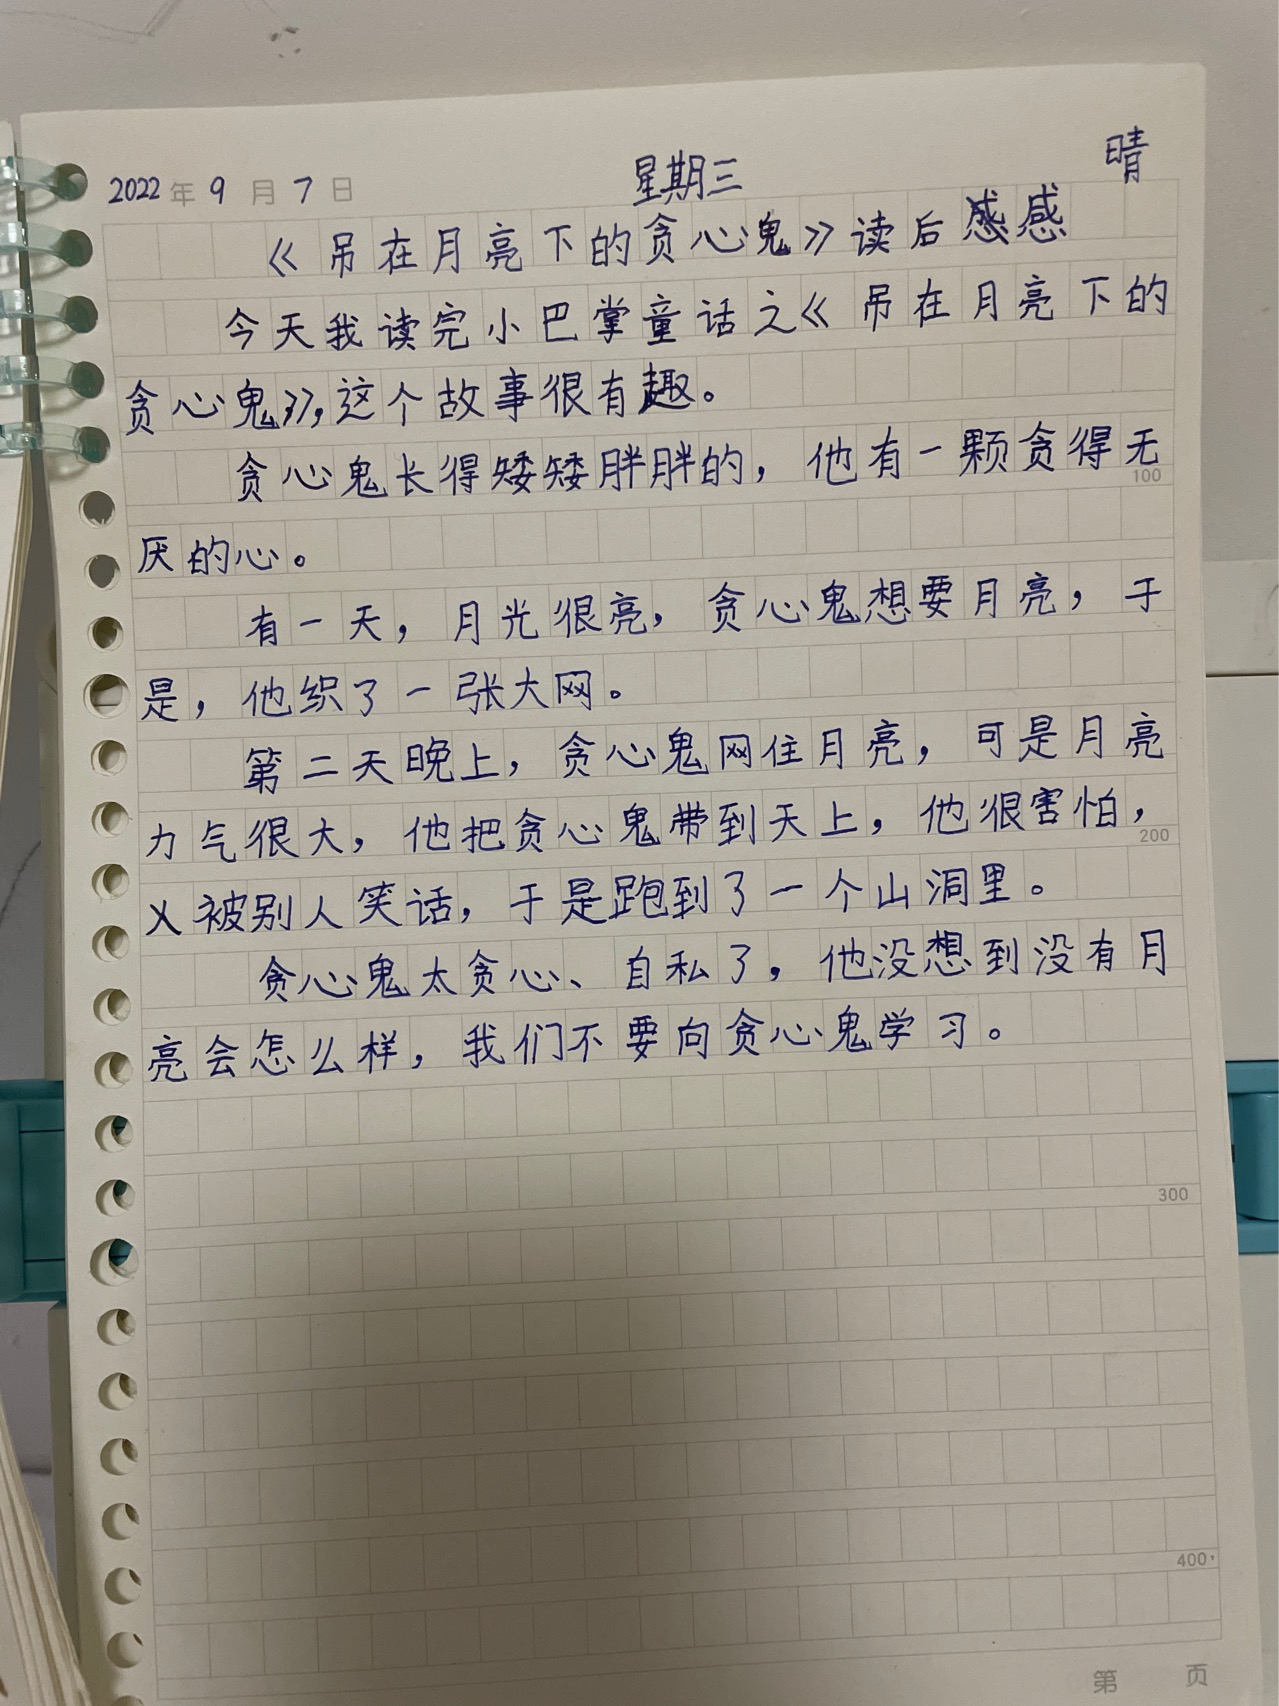 2022年9月7日 星期三 晴
《吊在月亮下的贪心鬼》读后感感
今天我读完小巴掌童话之《吊在月亮下的
贪心鬼》,这个故事很有趣。
贪心鬼长得矮矮胖胖的，他有一颗贪得无
100
厌的心。
有一天，月光很亮，贪心鬼想要月亮，于
是，他织了一张大网。
第二天晚上，贪心鬼网住月亮，可是月亮
力气很大，他把贪心鬼带到天上，他很害怕，
200
又被别人笑话，于是跑到了一个山洞里。
贪心鬼太贪心、自私了，他没想到没有月
亮会怎么样，我们不要向贪心鬼学习。
300
400
第 页